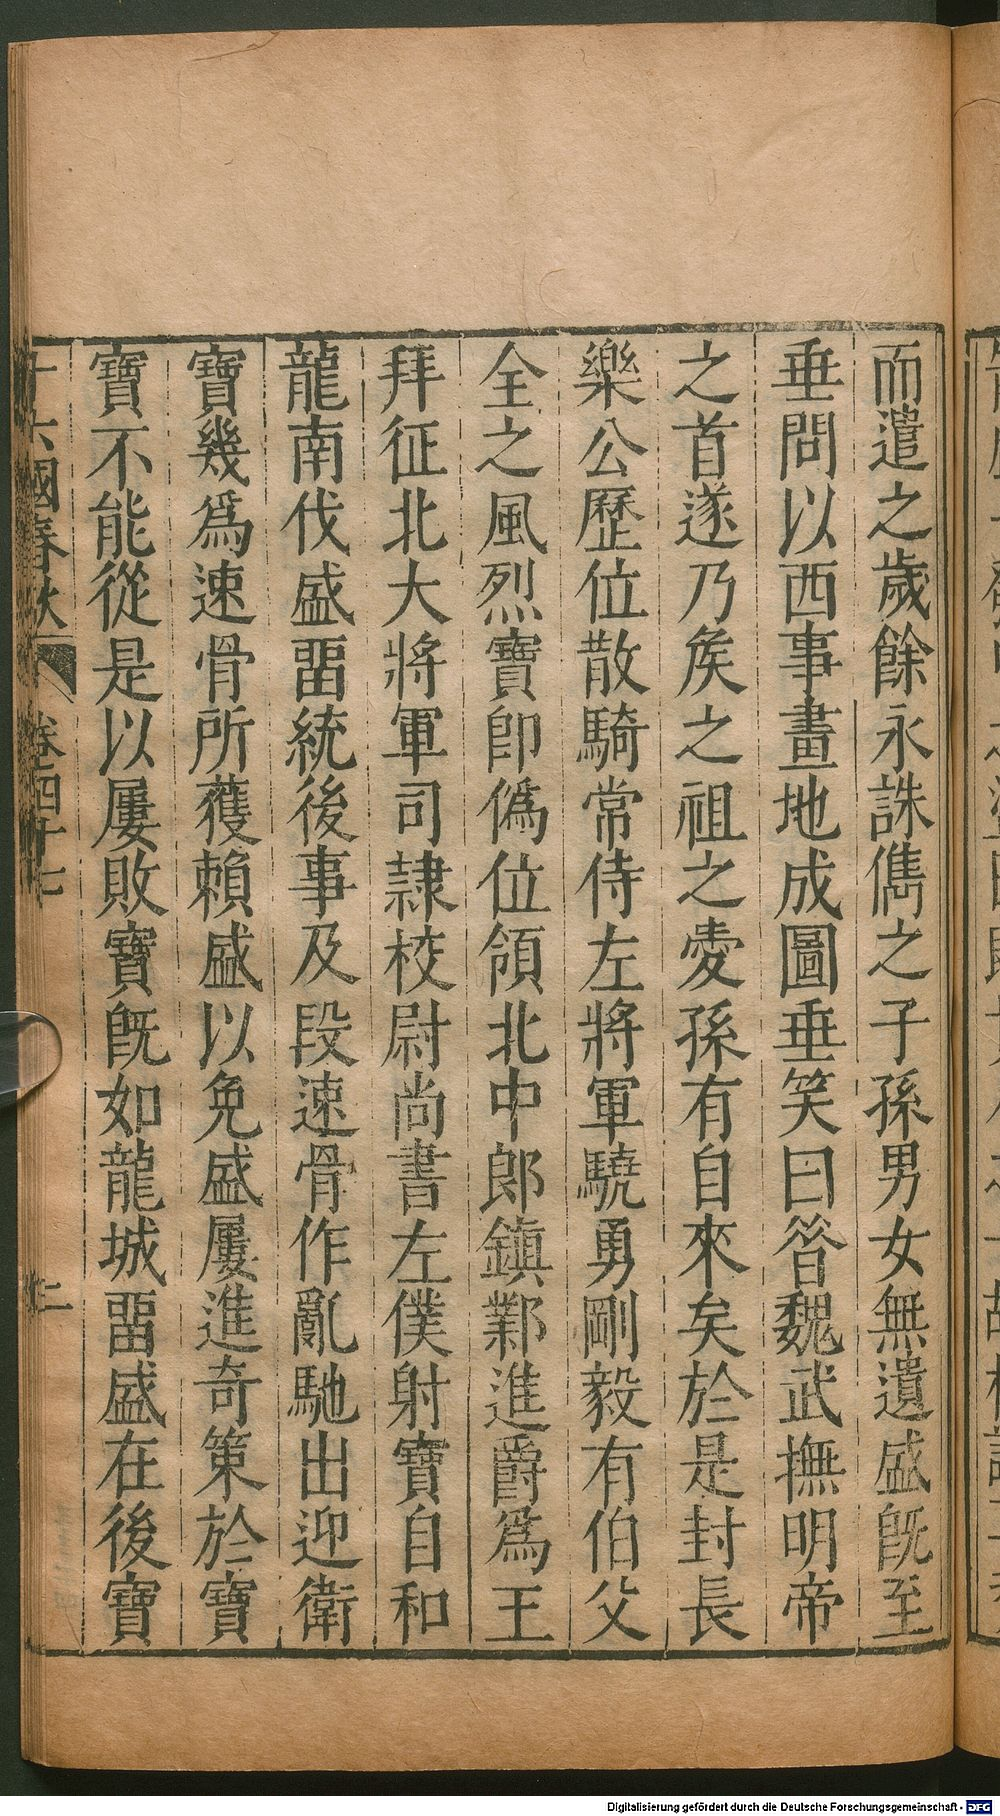 而遣之歲餘永誅儁之子孫男女無遺盛旣至
垂問以西事畫地成圖垂笑曰昝魏武撫明帝
之首遂乃矦之祖之愛孫有自來矣於是封長
樂公歷位散騎常侍左將軍驍勇剛毅有伯父
全之風烈寶卽僞位領北中郎鎮鄴進爵爲王
拜征北大將軍司隷校尉尚書左僕射寶自和
龍南伐盛畱統後事及段速骨作亂馳出迎衛
寶幾爲速骨所獲賴盛以免盛屢進奇策於寶
寶不能從是以屢敗寶旣如龍城畱盛在後寶
十六國春秋
卷四十七
二
Digitalisierung gefördert durch die Deutsche Forschungsgemeinschaft - DFG